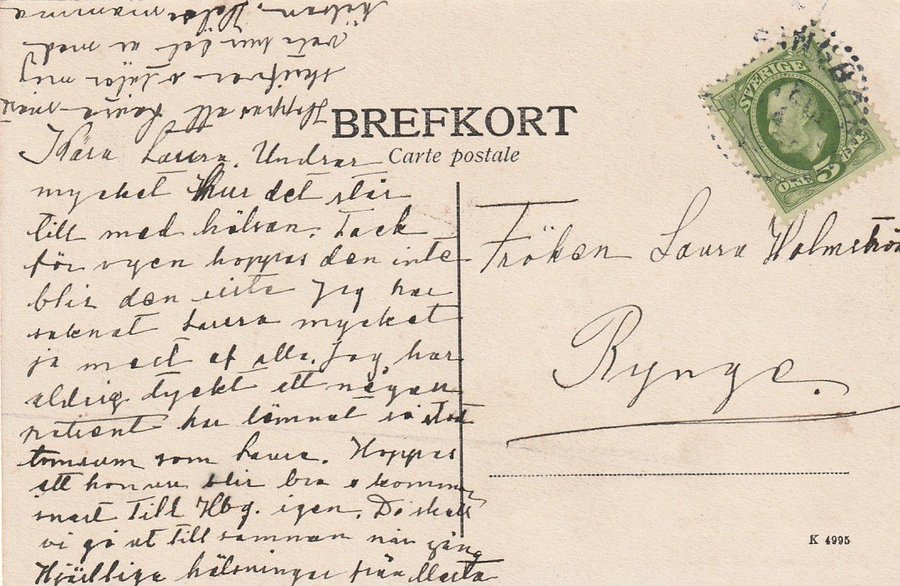 BREFKORT
Carte postale
SVERIGE
5
ÖRE
Kära Laura. Undrar
mycket hur det står
till med hälsan. Tack
för vyen hoppas den inte
blir den sista Jag har
saknat Laura mycket
ja mest af alla. Jag har
aldrig tyckt att någon
patient har lämnat så stor
tomrum som Laura. Hoppas
att hon nu blir bra o kommer
snart till Hbg. igen. Då skall
vi gå ut tillsamman när gång
Hjärtliga hälsningar från Märta
Hoppas att Laura snart
skrifver o talar om mig
hur det är med
hälsan. Hälsa mamma
Fröken Laura Holmström
Rynge.
K 4995